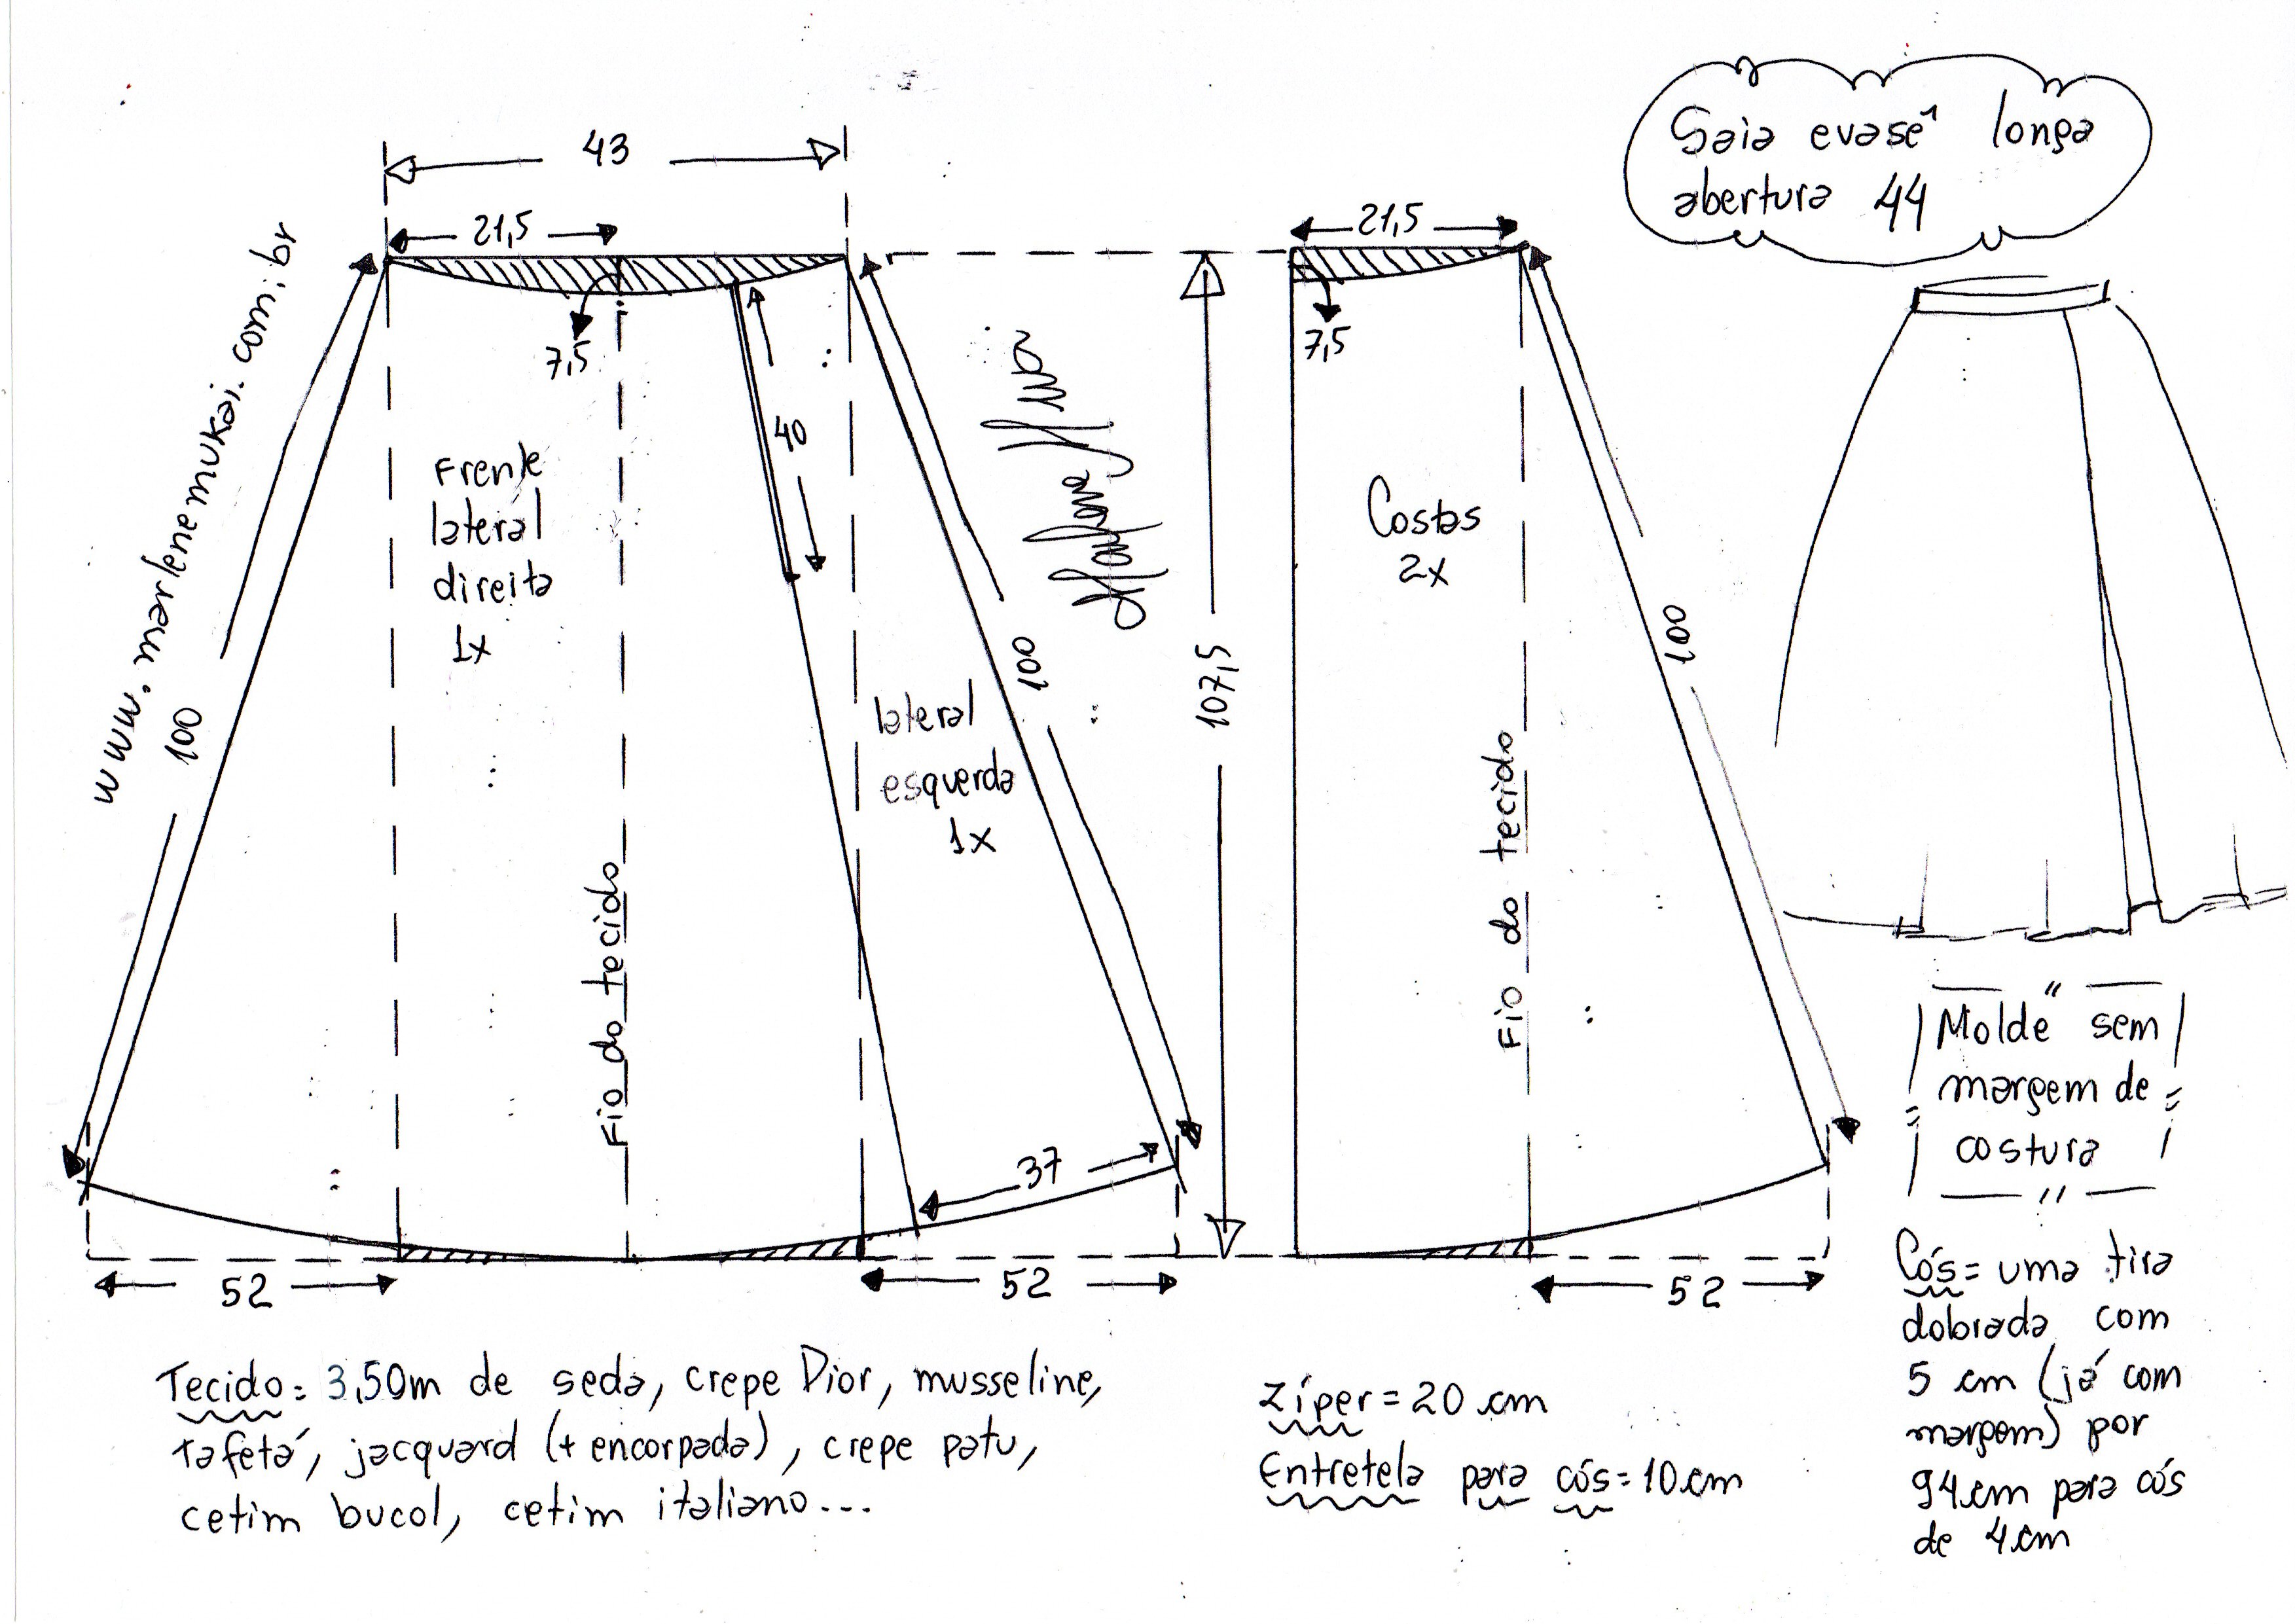 Saia evasê longa
abertura 44
43
21,5
21,5
7,5
7,5
www.marlenemukai.com.br
40
Frente
lateral
direita
1x
Costas
2x
100
100
100
107,5
lateral
esquerda
1x
Fio do tecido
Fio do tecido
37
52
52
52
"
Molde sem
margem de
costura
"
Cós = uma tira
dobrada com
5 cm (já com
margem) por
94 cm para cós
de 4 cm
Tecido = 3,50m de seda, crepe Dior, musseline,
tafetá, jacquard (+ encorpada), crepe patu,
cetim bucol, cetim italiano...
Zíper = 20 cm
Entretela para cós = 10 cm